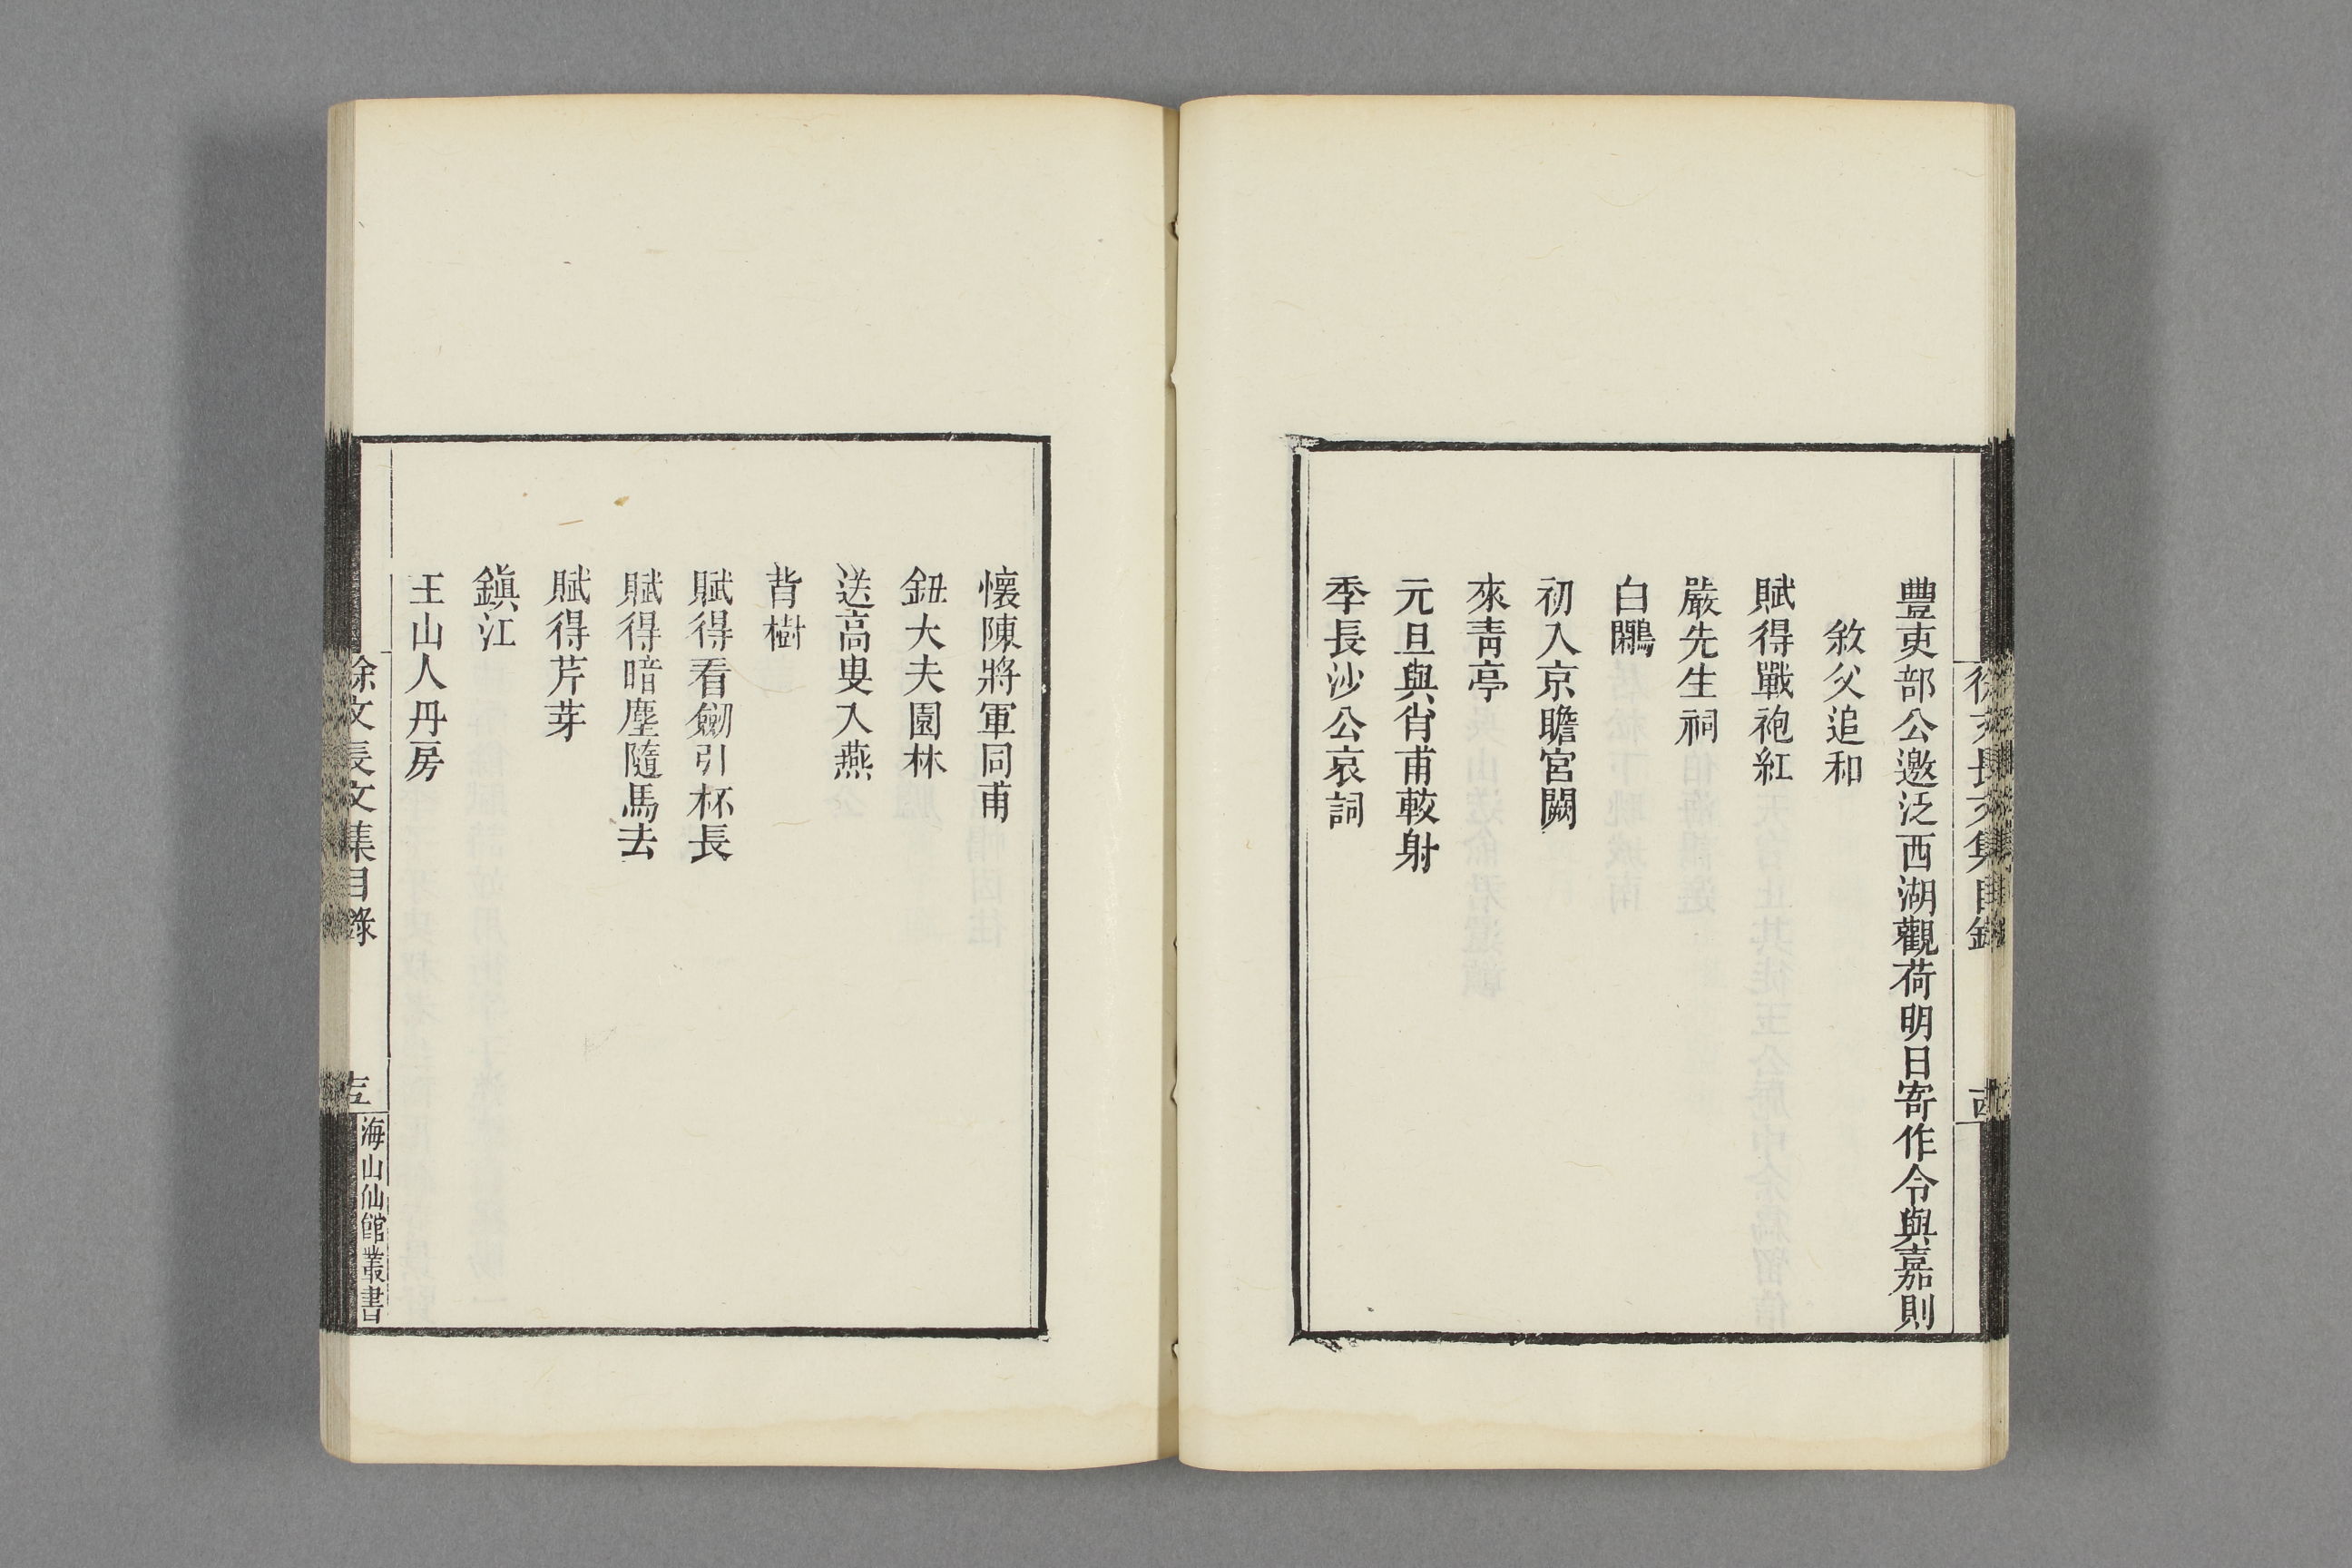 徐文長文集目錄
豐吏部公邀泛西湖觀荷明日寄作令與嘉則
敘父追和
賦得戰袍紅
嚴先生祠
白鷳
初入京瞻宮闕
來青亭
元旦與肖甫較射
季長沙公哀詞
懷陳將軍同甫
鈕大夫園林
送高叟入燕
背樹
賦得看劒引杯長
賦得暗塵隨馬去
賦得芹芽
鎮江
王山人丹房
徐文長文集目錄
海山仙館叢書